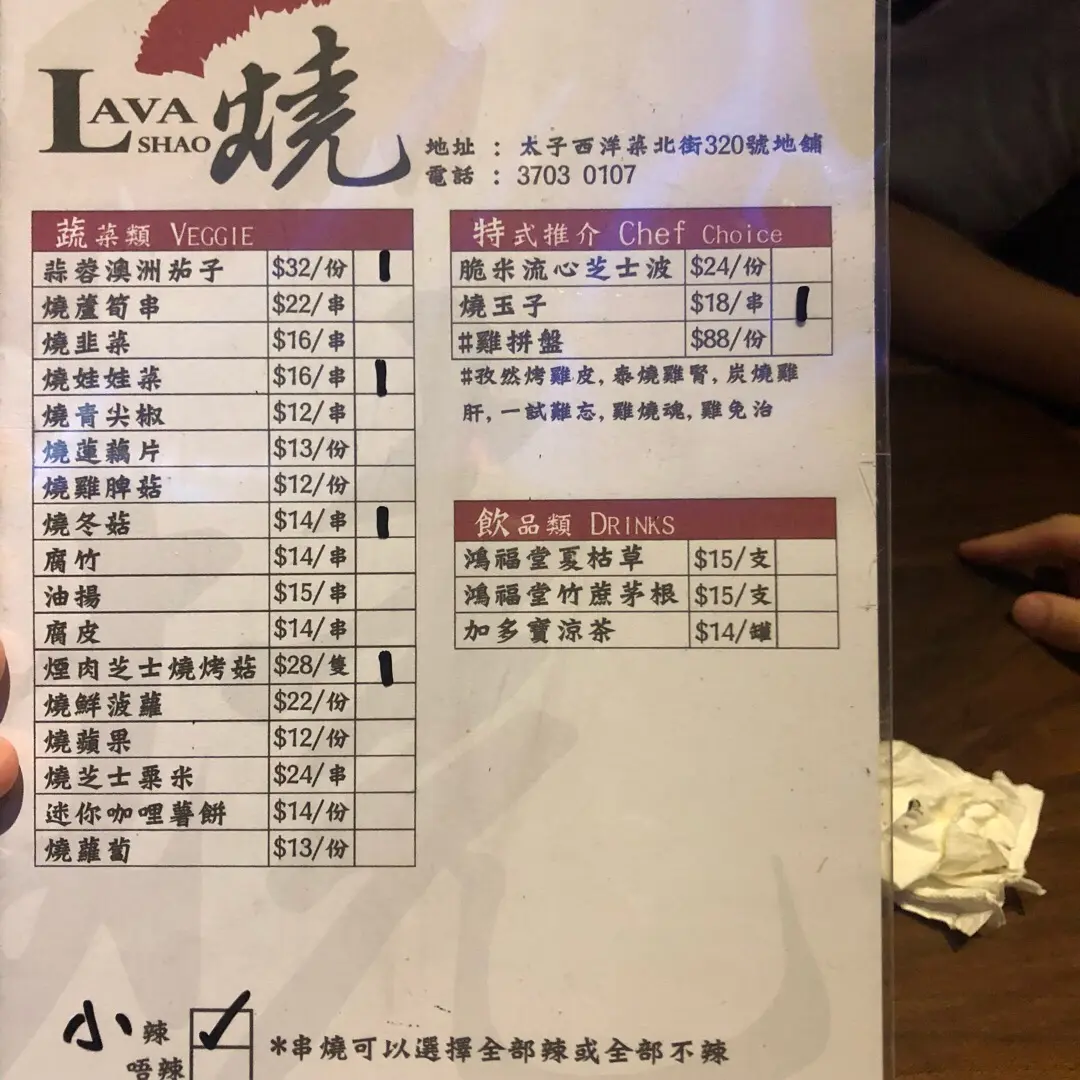 LAVA
SHAO
燒
地址 : 太子西洋菜北街320號地舖
電話 : 3703 0107
蔬菜類 VEGGIE
蒜蓉澳洲茄子 $32/份 1
燒蘆筍串 $22/串
燒韭菜 $16/串
燒娃娃菜 $16/串 1
燒青尖椒 $12/串
燒蓮藕片 $13/份
燒雞脾菇 $12/份
燒冬菇 $14/串 1
腐竹 $14/串
油揚 $15/串
腐皮 $14/串
煙肉芝士燒烤菇 $28/隻 1
燒鮮菠蘿 $22/份
燒蘋果 $12/份
燒芝士粟米 $24/串
迷你咖哩薯餅 $14/份
燒蘿蔔 $13/份
特式推介 Chef Choice
脆米流心芝士波 $24/份
燒玉子 $18/串 1
#雞拼盤 $88/份
#孜然烤雞皮, 泰燒雞腎, 炭燒雞
肝, 一試難忘, 雞燒魂, 雞免治
飲品類 DRINKS
鴻福堂夏枯草 $15/支
鴻福堂竹蔗茅根 $15/支
加多寶涼茶 $14/罐
小辣 ✓
唔辣
*串燒可以選擇全部辣或全部不辣